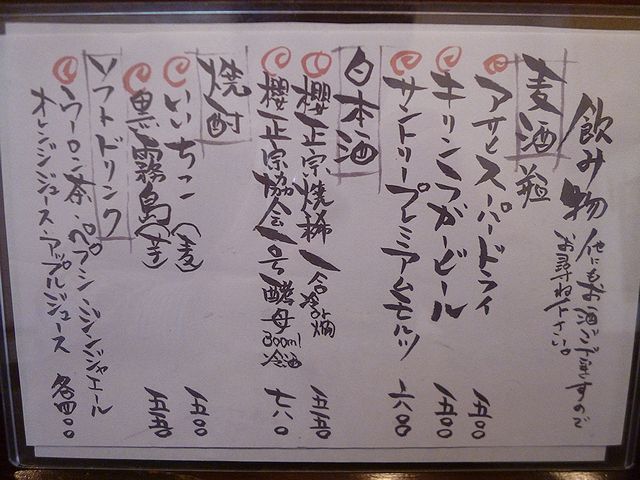 飲み物
他にもお酒ございますので
お尋ね下さい。
麦酒
アサヒスーパードライ 五〇〇
キリンラガービール 五〇〇
サントリープレミアムモルツ 六〇〇
日本酒
櫻正宗焼稀 一合 冷か燗 五五〇
櫻正宗協会一号酵母 300ml 冷酒
焼酎
いいちこ (麦) 五〇〇
黒霧島 (芋) 五五〇
ソフトドリンク
ウーロン茶・ペプシ・ジンジャエール
オレンジジュース・アップルジュース 各四〇〇